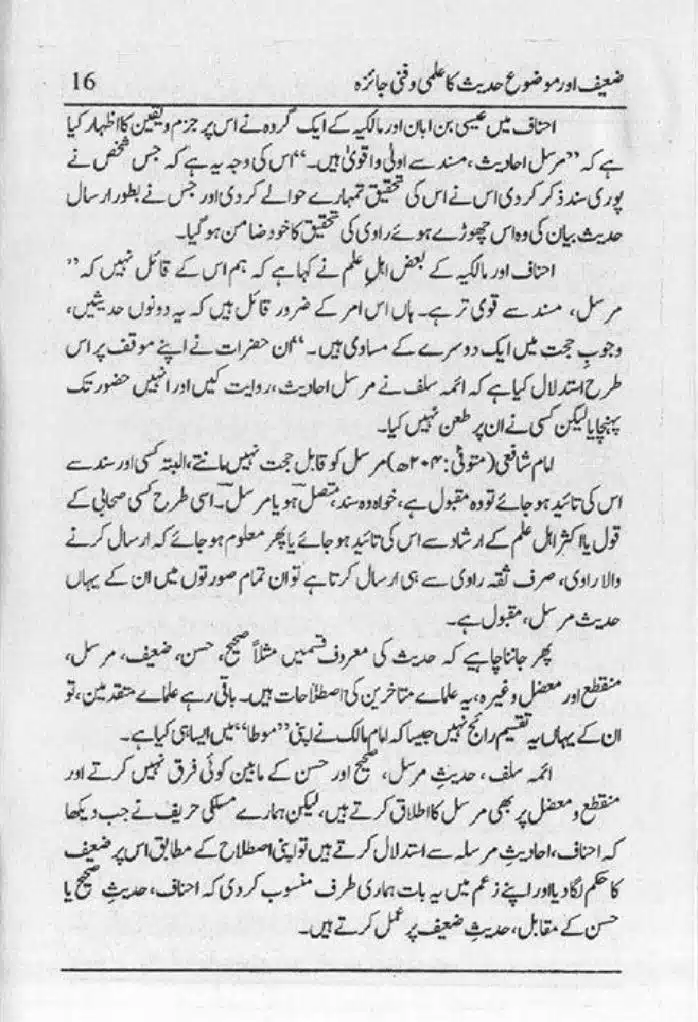 ضعیف اور موضوع حدیث کا علمی و فنی جائزہ 16
احناف میں عیسیٰ بن ابان اور مالکیہ کے ایک گروہ نے اس پر جزم و یقین کا اظہار کیا
ہے کہ ”مرسل احادیث، مسند سے اولیٰ و اقویٰ ہیں۔“ اس کی وجہ یہ ہے کہ جس شخص نے
پوری سند ذکر کر دی اس نے اس کی تحقیق تمہارے حوالے کر دی اور جس نے بطور ارسال
حدیث بیان کی وہ اس چھوڑے ہوئے راوی کی تحقیق کا خود ضامن ہو گیا۔
احناف اور مالکیہ کے بعض اہلِ علم نے کہا ہے کہ ہم اس کے قائل نہیں کہ ”
مرسل، مسند سے قوی تر ہے۔ ہاں اس امر کے ضرور قائل ہیں کہ یہ دونوں حدیثیں،
وجوبِ حجت میں ایک دوسرے کے مساوی ہیں۔“ ان حضرات نے اپنے موقف پر اس
طرح استدلال کیا ہے کہ ائمہ سلف نے مرسل احادیث، روایت کیں اور انہیں حضور تک
پہنچایا لیکن کسی نے ان پر طعن نہیں کیا۔
امام شافعی (متوفّٰی: ۲۰۴ھ) مرسل کو قابل حجت نہیں مانتے، البتہ کسی اور سند سے
اس کی تائید ہو جائے تو وہ مقبول ہے، خواہ وہ سند، متصل ہو یا مرسل۔ اسی طرح کسی صحابی کے
قول یا اکثر اہل علم کے ارشاد سے اس کی تائید ہو جائے یا پھر معلوم ہو جائے کہ ارسال کرنے
والا راوی، صرف ثقہ راوی سے ہی ارسال کرتا ہے تو ان تمام صورتوں میں ان کے یہاں
حدیث مرسل، مقبول ہے۔
پھر جاننا چاہیے کہ حدیث کی معروف قسمیں مثلاً صحیح، حسن، ضعیف، مرسل،
منقطع اور معضل وغیرہ، یہ علماے متاخرین کی اصطلاحات ہیں۔ باقی رہے علماے متقدمین، تو
ان کے یہاں یہ تقسیم رائج نہیں جیسا کہ امام مالک نے اپنی ”موطا“ میں ایسا ہی کیا ہے۔
ائمہ سلف، حدیثِ مرسل، صحیح اور حسن کے مابین کوئی فرق نہیں کرتے اور
منقطع و معضل پر بھی مرسل کا اطلاق کرتے ہیں، لیکن ہمارے مسلکی حریف نے جب دیکھا
کہ احناف، احادیثِ مرسلہ سے استدلال کرتے ہیں تو اپنی اصطلاح کے مطابق اس پر ضعیف
کا حکم لگا دیا اور اپنے زعم میں یہ بات ہماری طرف منسوب کر دی کہ احناف، حدیثِ صحیح یا
حسن کے مقابل، حدیثِ ضعیف پر عمل کرتے ہیں۔